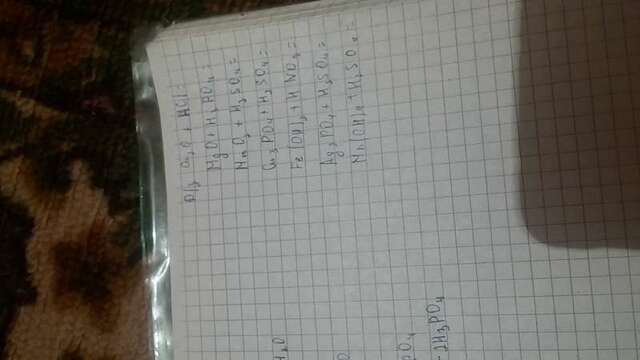 Д/з Cu₂O + HCl =
MgO + H₃PO₄ =
MnO₂ + H₂SO₄ =
Cu₃PO₄ + H₂SO₄ =
Fe(OH)₂ + HNO₃ =
Ag₃PO₄ + H₂SO₄ =
Mn(OH)₄ + H₂SO₄ =
H₂O
O
PO₄
- 2H₃PO₄